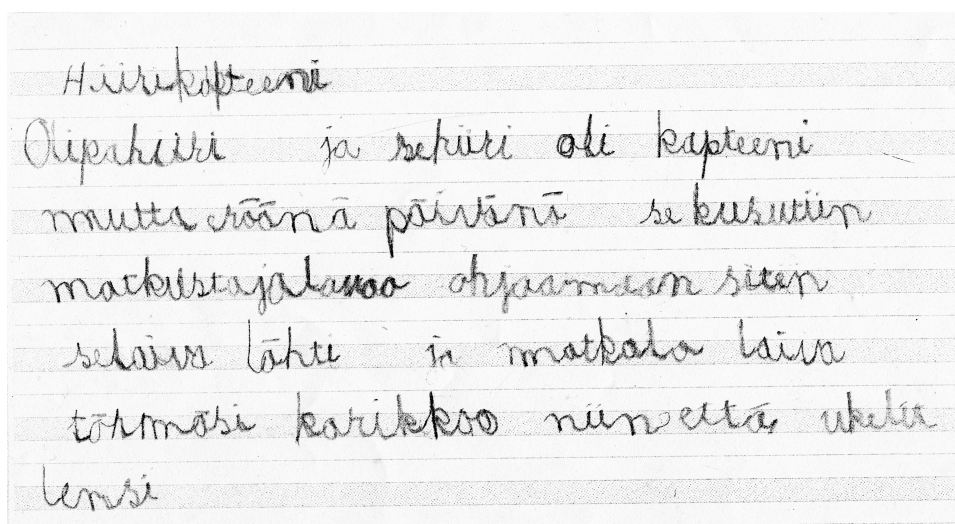 Hiirikapteeni
Olipahiiri ja sehiiri oli kapteeni
mutta eräänä päivänä se kusutiin
matkustajalaivaa ohjaamaan siten
selaiva lähti ja matkala laiva
törmäsi karikkoo niin että ukelit
lensi